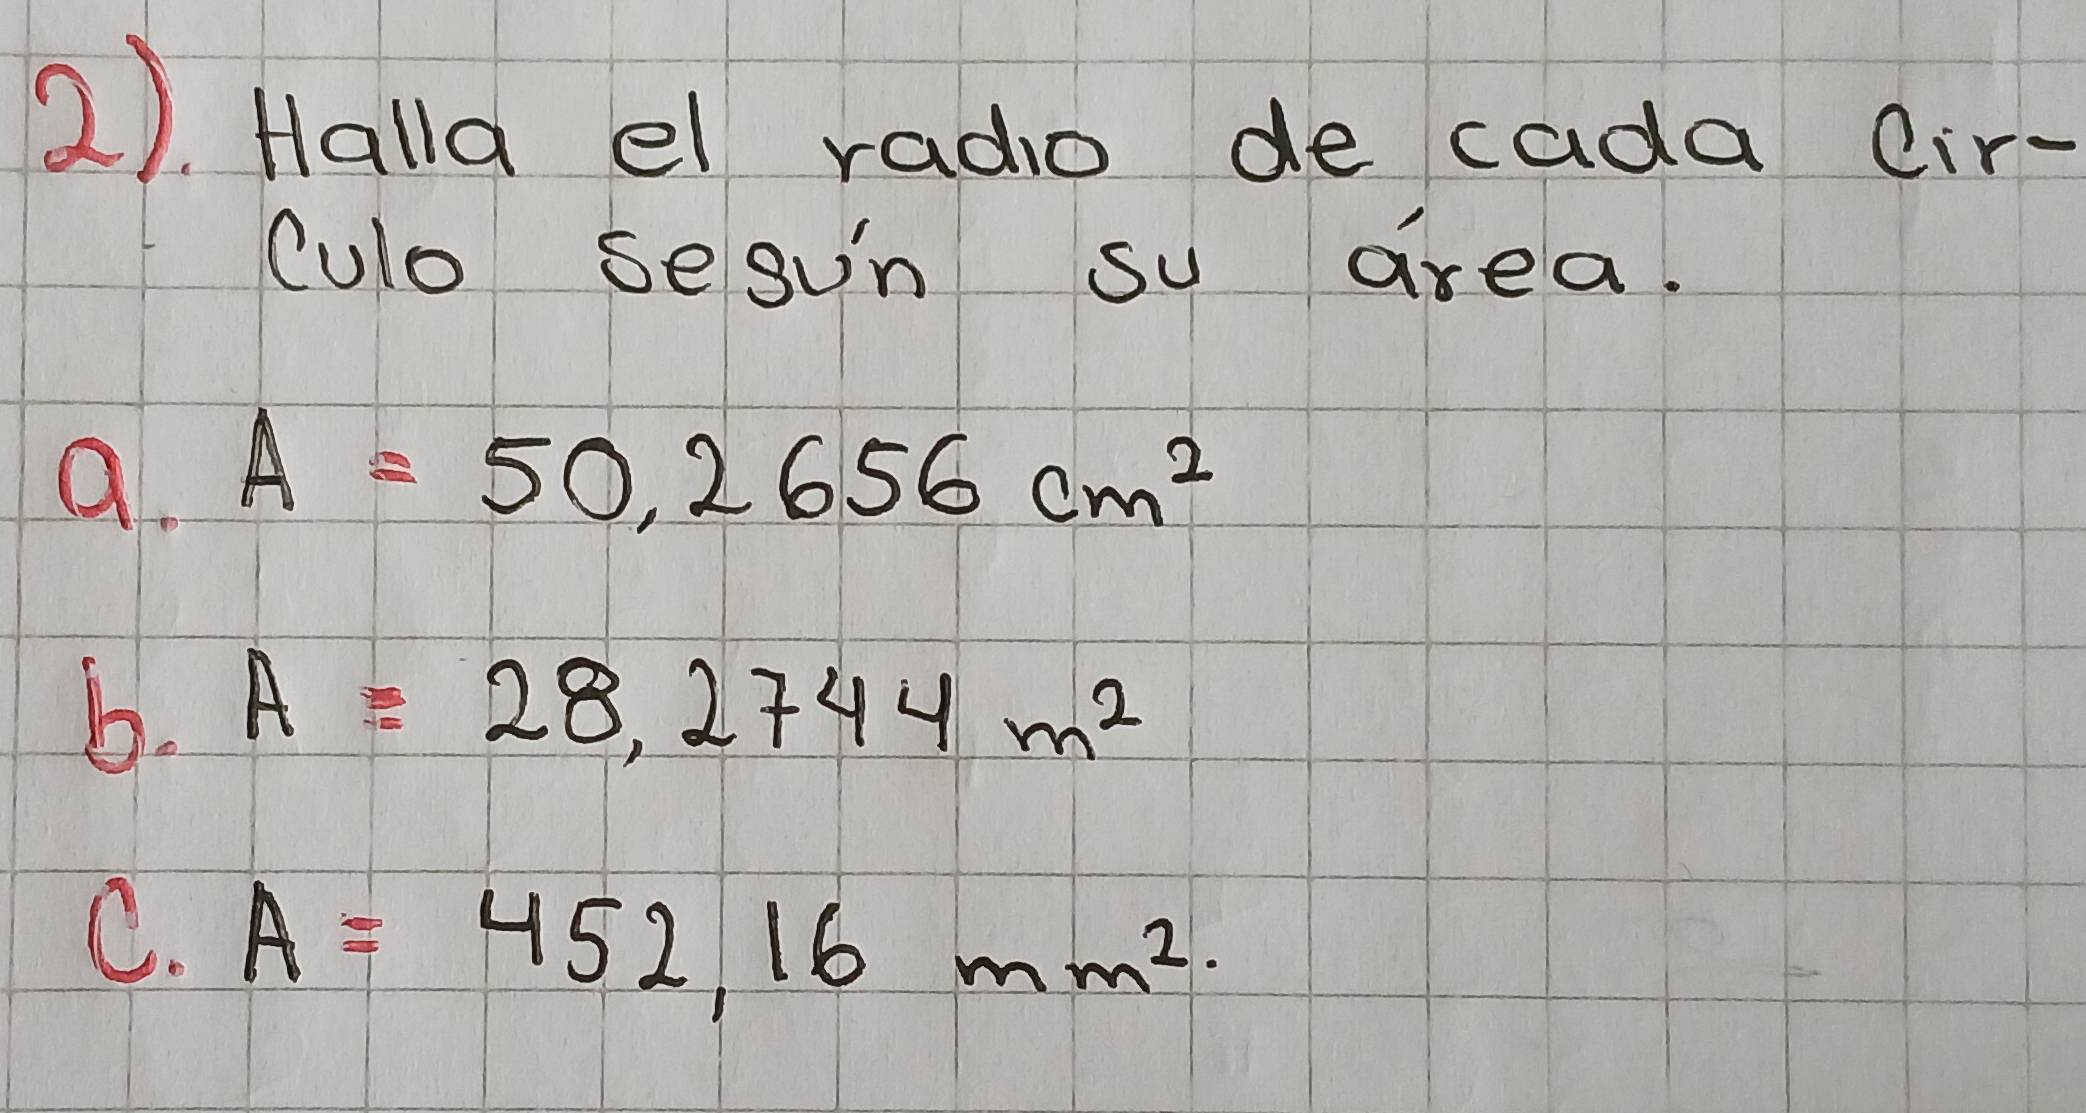 2). Halla el radio de cada cir-
culo según su área.
a. A = 50,2656 cm²
b. A = 28,2744 m²
C. A = 452,16 mm².